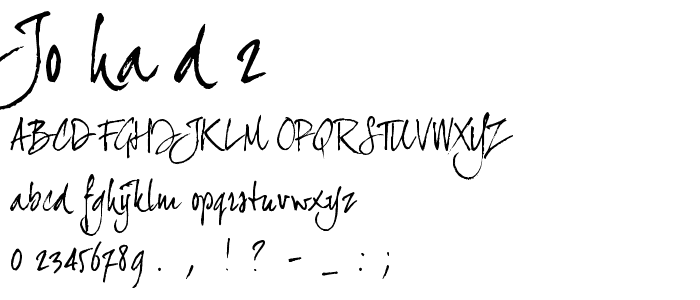 Jo ha d 2
ABCD FGHIJKLM OPQRSTUVWXYZ
abcd fghijklm opqrstuvwxyz
0 23456789 . , ! ? - _ : ;